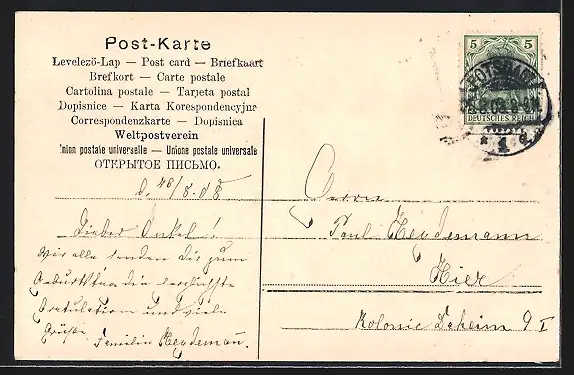 Post-Karte
Levelező-Lap — Post card — Briefkaart
Brefkort — Carte postale
Cartolina postale — Tarjeta postal
Dopisnice — Karta Korespondencyjna
Correspondenzkarte — Dopisnica
Weltpostverein
Union postale universelle — Unione postale universale
ОТКРЫТОЕ ПИСЬМО.
5 5
DEUTSCHES REICH
Lieber Onkel!
Wir alle senden Dir zum
Geburtstag die herzlichste
Gratulation und viele
Grüße Familie Heydemann.
Herrn
Paul Heydemann
Hier
Kolonie 9 I